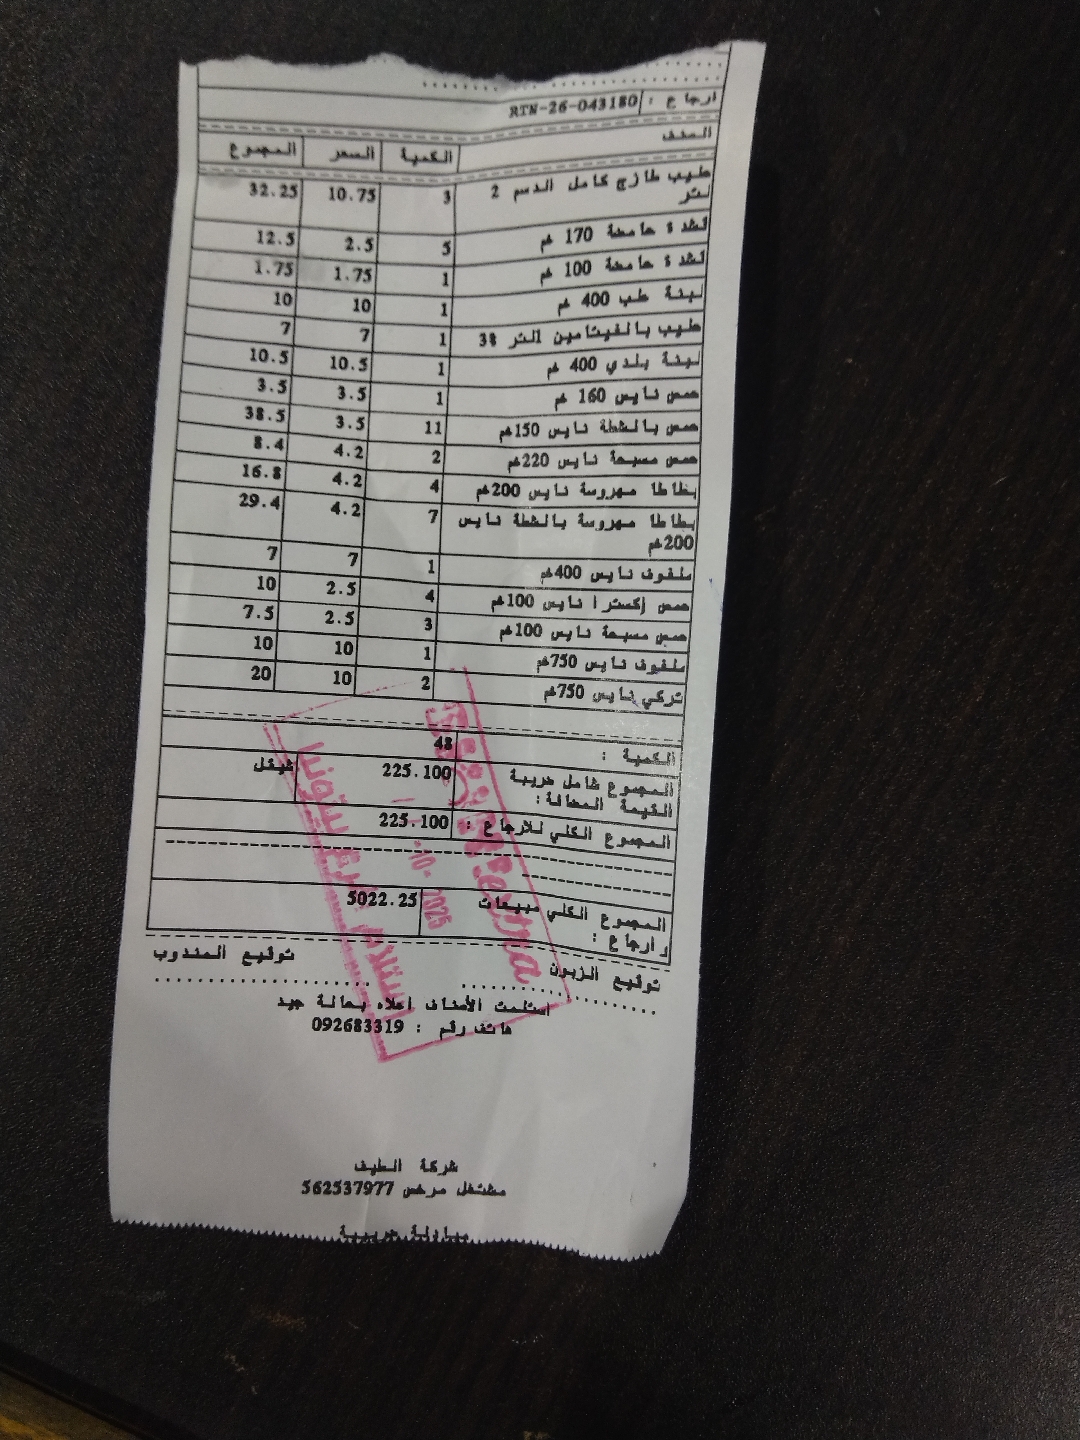 ارجاع : RTN-26-043180
الصنف الكمية السعر المجموع
حليب طازج كامل الدسم 2 لتر 3 10.75 32.25
قشدة حامضة 170 غم 5 2.5 12.5
قشدة حامضة 100 غم 1 1.75 1.75
لبنة طب 400 غم 1 10 10
حليب بالفيتامين التر 3% 1 7 7
لبنة بلدي 400 غم 1 10.5 10.5
حمص نايس 160 غم 1 3.5 3.5
حمص بالشطة نايس 150غم 11 3.5 38.5
حمص مسبحة نايس 220غم 2 4.2 8.4
بطاطا مهروسة نايس 200غم 4 4.2 16.8
بطاطا مهروسة بالشطة نايس 200غم 7 4.2 29.4
ملفوف نايس 400غم 1 7 7
حمص إكسترا نايس 100غم 4 2.5 10
حمص مسبحة نايس 100غم 3 2.5 7.5
ملفوف نايس 750غم 1 10 10
تركي نايس 750غم 2 10 20
الكمية : 48
المجموع شامل ضريبة 225.100 شيقل
القيمة المضافة:
المجموع الكلي للارجاع : 225.100
المجموع الكلي مبيعات 5022.25
و ارجاع :
توقيع الزبون توقيع المندوب
استلمت الأصناف اعلاه بحالة جيد
هاتف رقم : 092683319
شركة الطيف
مشتغل مرخص 562537977